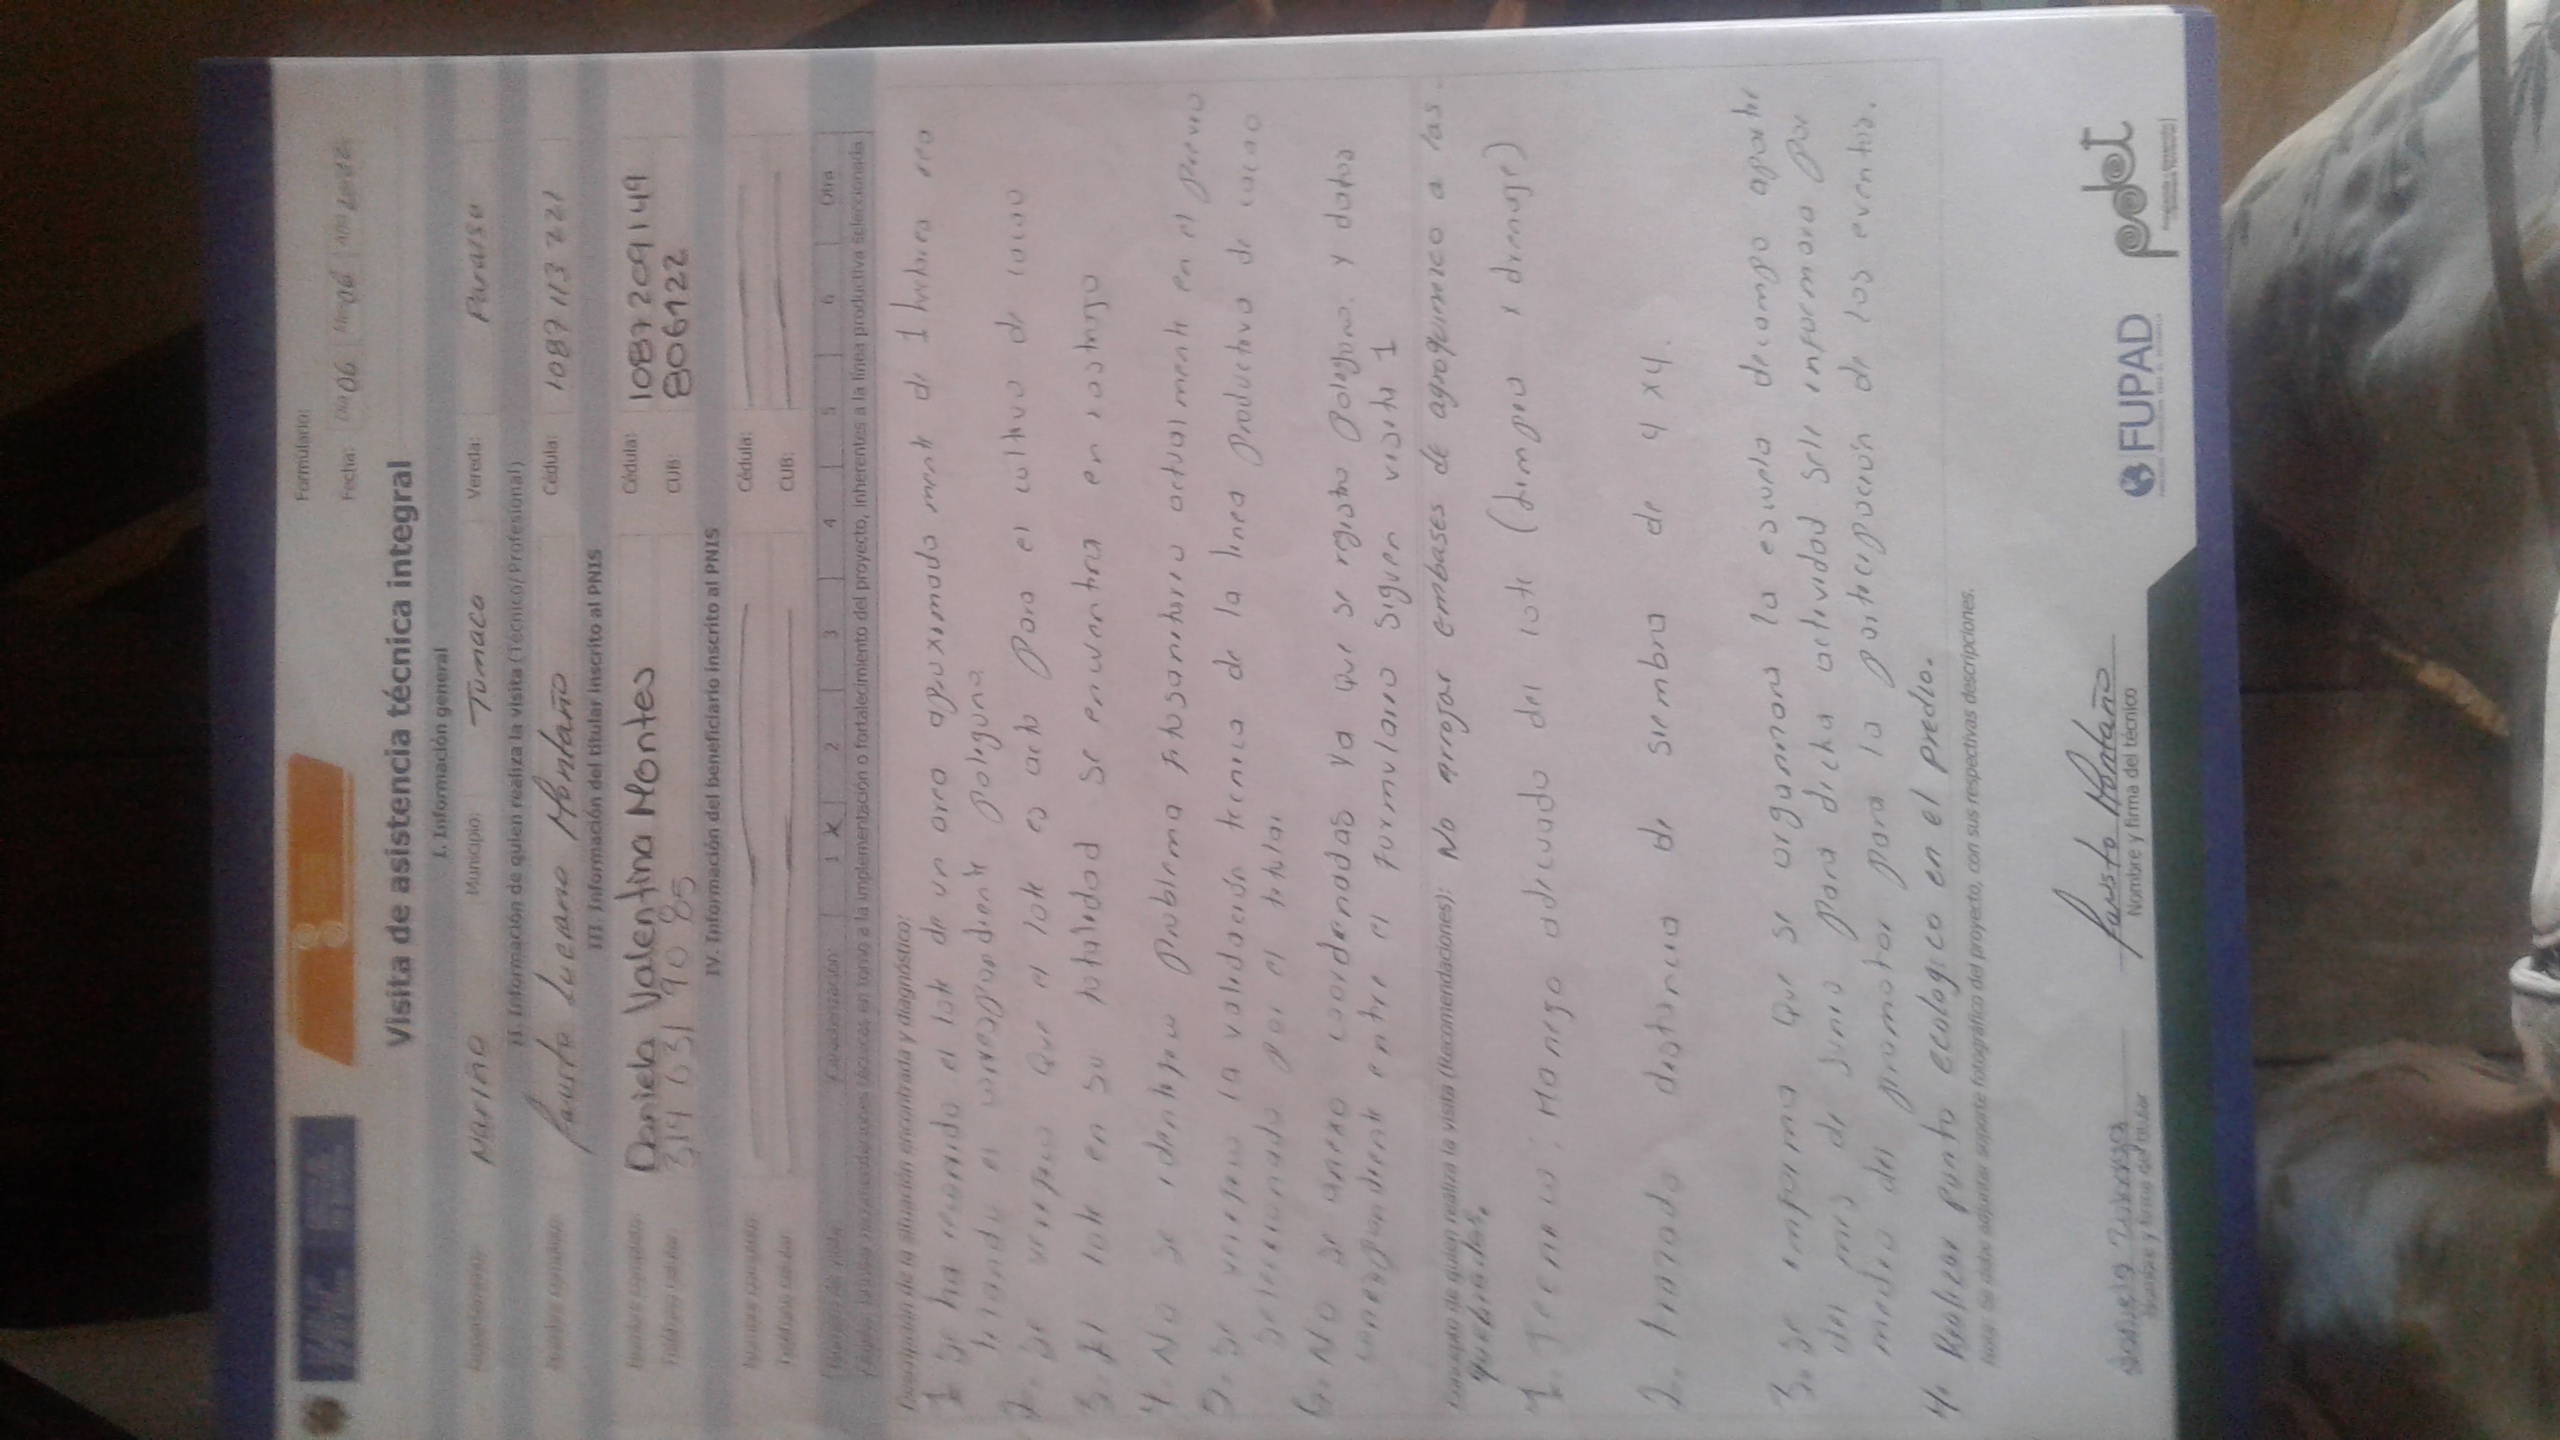 Formulario:
Fecha: Día 06 Mes 06 Año
Visita de asistencia técnica integral
I. Información general
Departamento: Nariño Municipio: Tumaco Vereda: Paraiso
II. Información de quien realiza la visita (Técnico/Profesional)
Nombre completo: Fausto Luciano Montaño Cédula: 1087113221
III. Información del titular inscrito al PNIS
Nombre completo: Daniela Valentina Montes Cédula: 1087209149
Teléfono celular: 314 631 90 85 CUB: 806122
IV. Información del beneficiario inscrito al PNIS
Nombre completo: Cédula:
Teléfono celular: CUB:
Caracterización: 1 X 2 3 4 5 6 Otra
a la implementación o fortalecimiento del proyecto, inherentes a la línea productiva seleccionada
Descripción de la situación encontrada y diagnóstico:
1. Se ha el lote de un area aproximada mente de 1
el correspondiente poligono
2. Se que el lote es acto para el cultivo de cacao
3. El lote en su totalidad se encuentra en rastrojo
4. No se identifico problema fitosanitario actualmente en el previo
5. Se verifico la validación tecnica de la linea productiva de cacao
seleccionado por el titular
6. No se anexo coordenadas ya que se registro poligono y datos
correspondiente entre el formulario siguen visita 1
Concepto de quien realiza la visita (Recomendaciones): No arrojar embases de agroquimico a las
quebradas.
1. Tecnico: Manejo adecuado del lote (limpia x drenaje)
2. trazado distancia de siembra de 4 x 4.
3. Se informa que se organizara la escuela de campo apartir
del mes de Junio para dicha actividad se le informara por
medio del promotor para la participación de los eventos.
4. Realizar punto ecologico en el predio.
Nota: Se debe adjuntar soporte fotográfico del proyecto, con sus respectivas descripciones.
Fausto Montaño
Nombre y firma del titular Nombre y firma del técnico
FUPAD
pdet